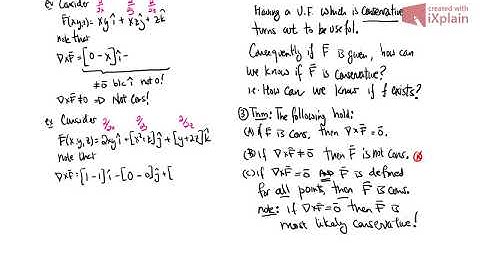 ex Consider ∂/∂x ∂/∂y ∂/∂z
F̄(x,y,z) = xyî + xzĵ + zk̂
note that
∇×F̄ = [0-x]î -
≠0 b/c î not 0!
∇×F̄ ≠ 0 => Not Cons!
ex Consider ∂/∂x ∂/∂y ∂/∂z
F̄(x,y,z) = 2xyî + [x²+z]ĵ + [y+2z]k̂
note that
∇×F̄ = [1-1]î - [0-0]ĵ + [
Having a V.F. which is conservative
turns out to be useful.
Consequently if F̄ is given, how can
we know if F̄ is conservative?
i.e. How can we know if f exists?
③ Thm: The following hold:
(A) if F̄ is cons. then ∇×F̄ = ō.
(B) if ∇×F̄ ≠ ō then F̄ is not cons.
(C) if ∇×F̄ = ō AND F̄ is defined
for all points, then F̄ is cons.
note: if ∇×F̄ = ō then F̄ is
most likely conservative!
created with
iXplain